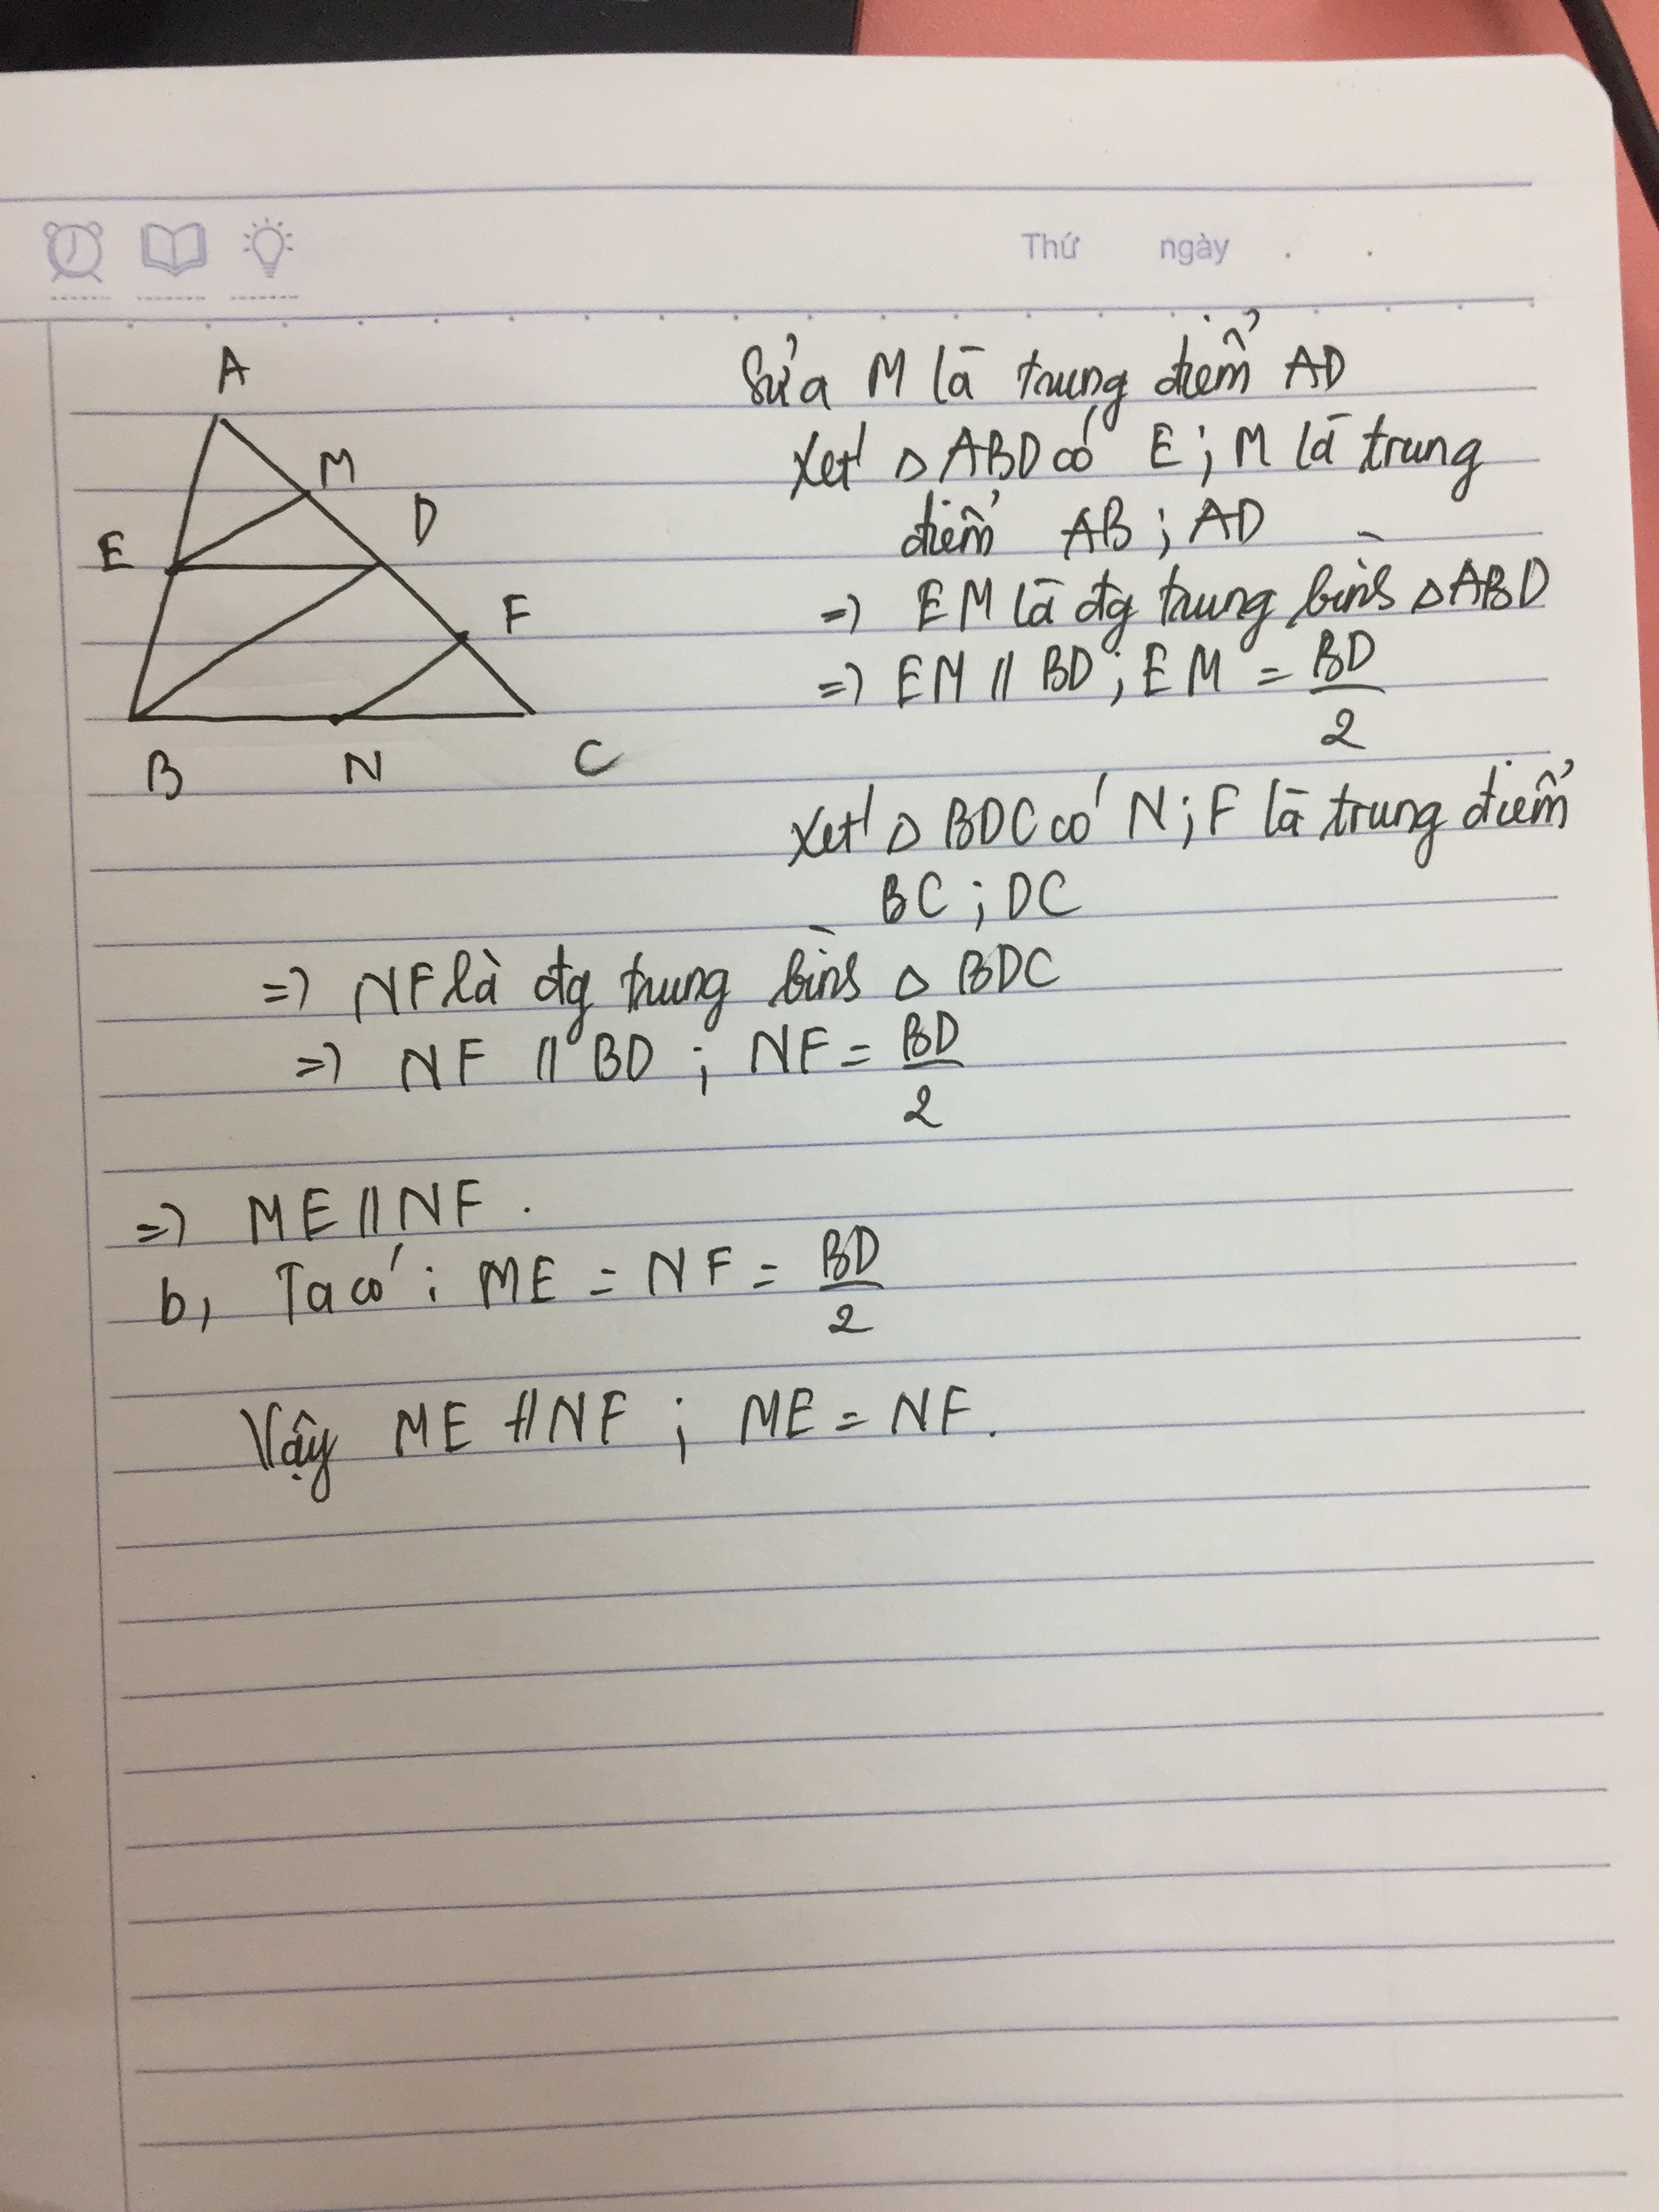 Thứ ngày . .
A
M
D
E
F
B N C
Sửa M là trung điểm AD
Xét △ABD có E; M là trung
điểm AB; AD
=> EM là đg trung bình △ABD
=> EM // BD; EM = BD/2
Xét △BDC có N; F là trung điểm
BC; DC
=> NF là đg trung bình △BDC
=> NF // BD; NF = BD/2
=> ME // NF.
b, Ta có: ME = NF = BD/2
Vậy ME // NF; ME = NF.